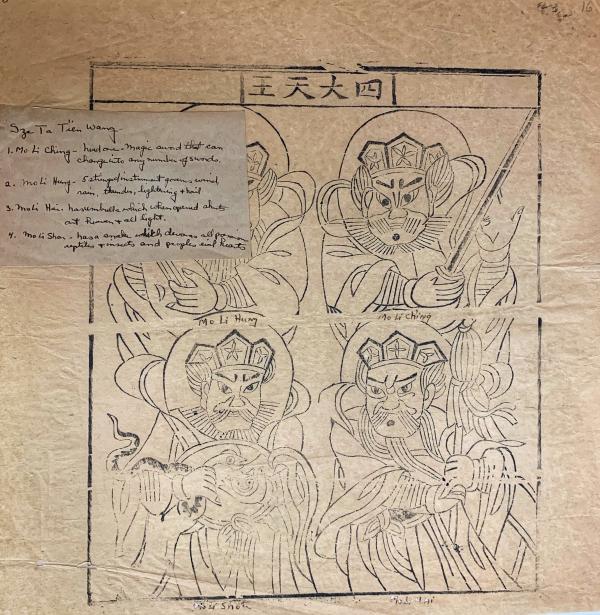 16
王天大四
Sze Ta Tien Wang
1. Mo Li Ching - had one - Magic sword that can
change into any number of swords.
2. Mo Li Hung - 5 stringed instrument governs wind
rain, thunder, lightning & hail
3. Mo Li Hai - has umbrella which when opened shuts
out &  all light.
4. Mo Li Shou - has a snake which devours all poison
reptiles & insects and peoples evil hearts
Mo Li Hung
Mo Li Ching
Mo Li Shou
Mo Li Hai